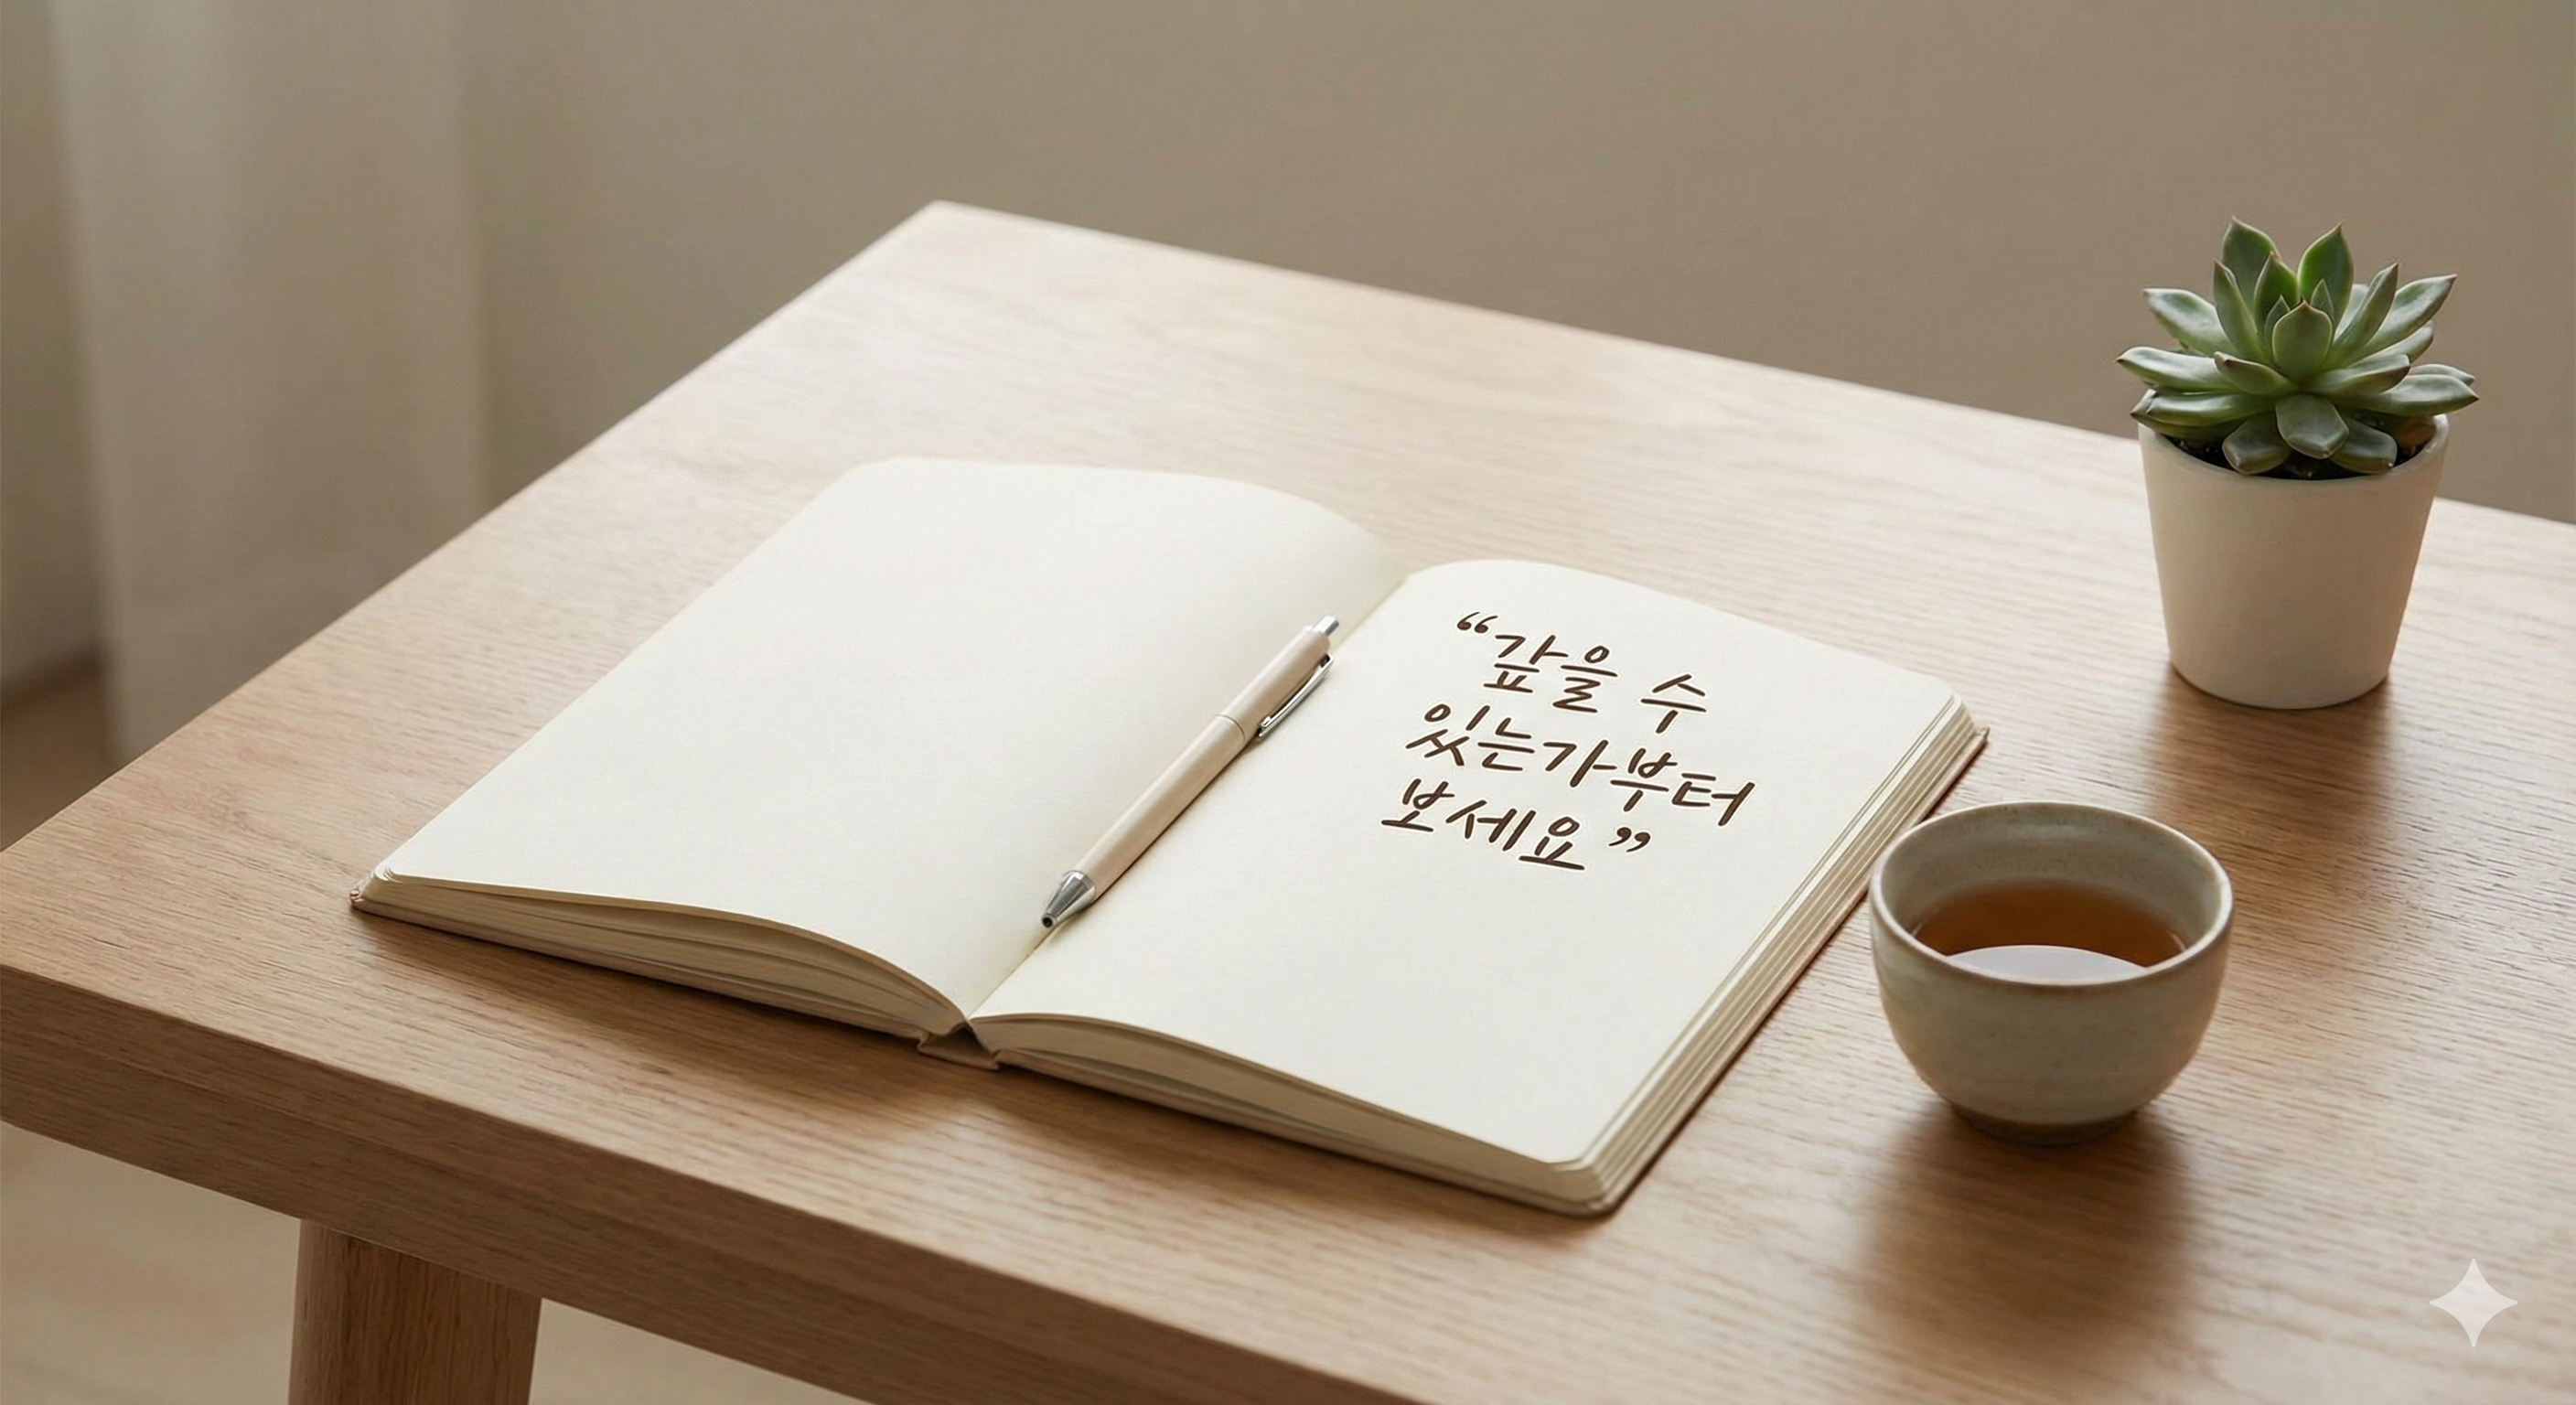 “갚을 수
있는가부터
보세요”